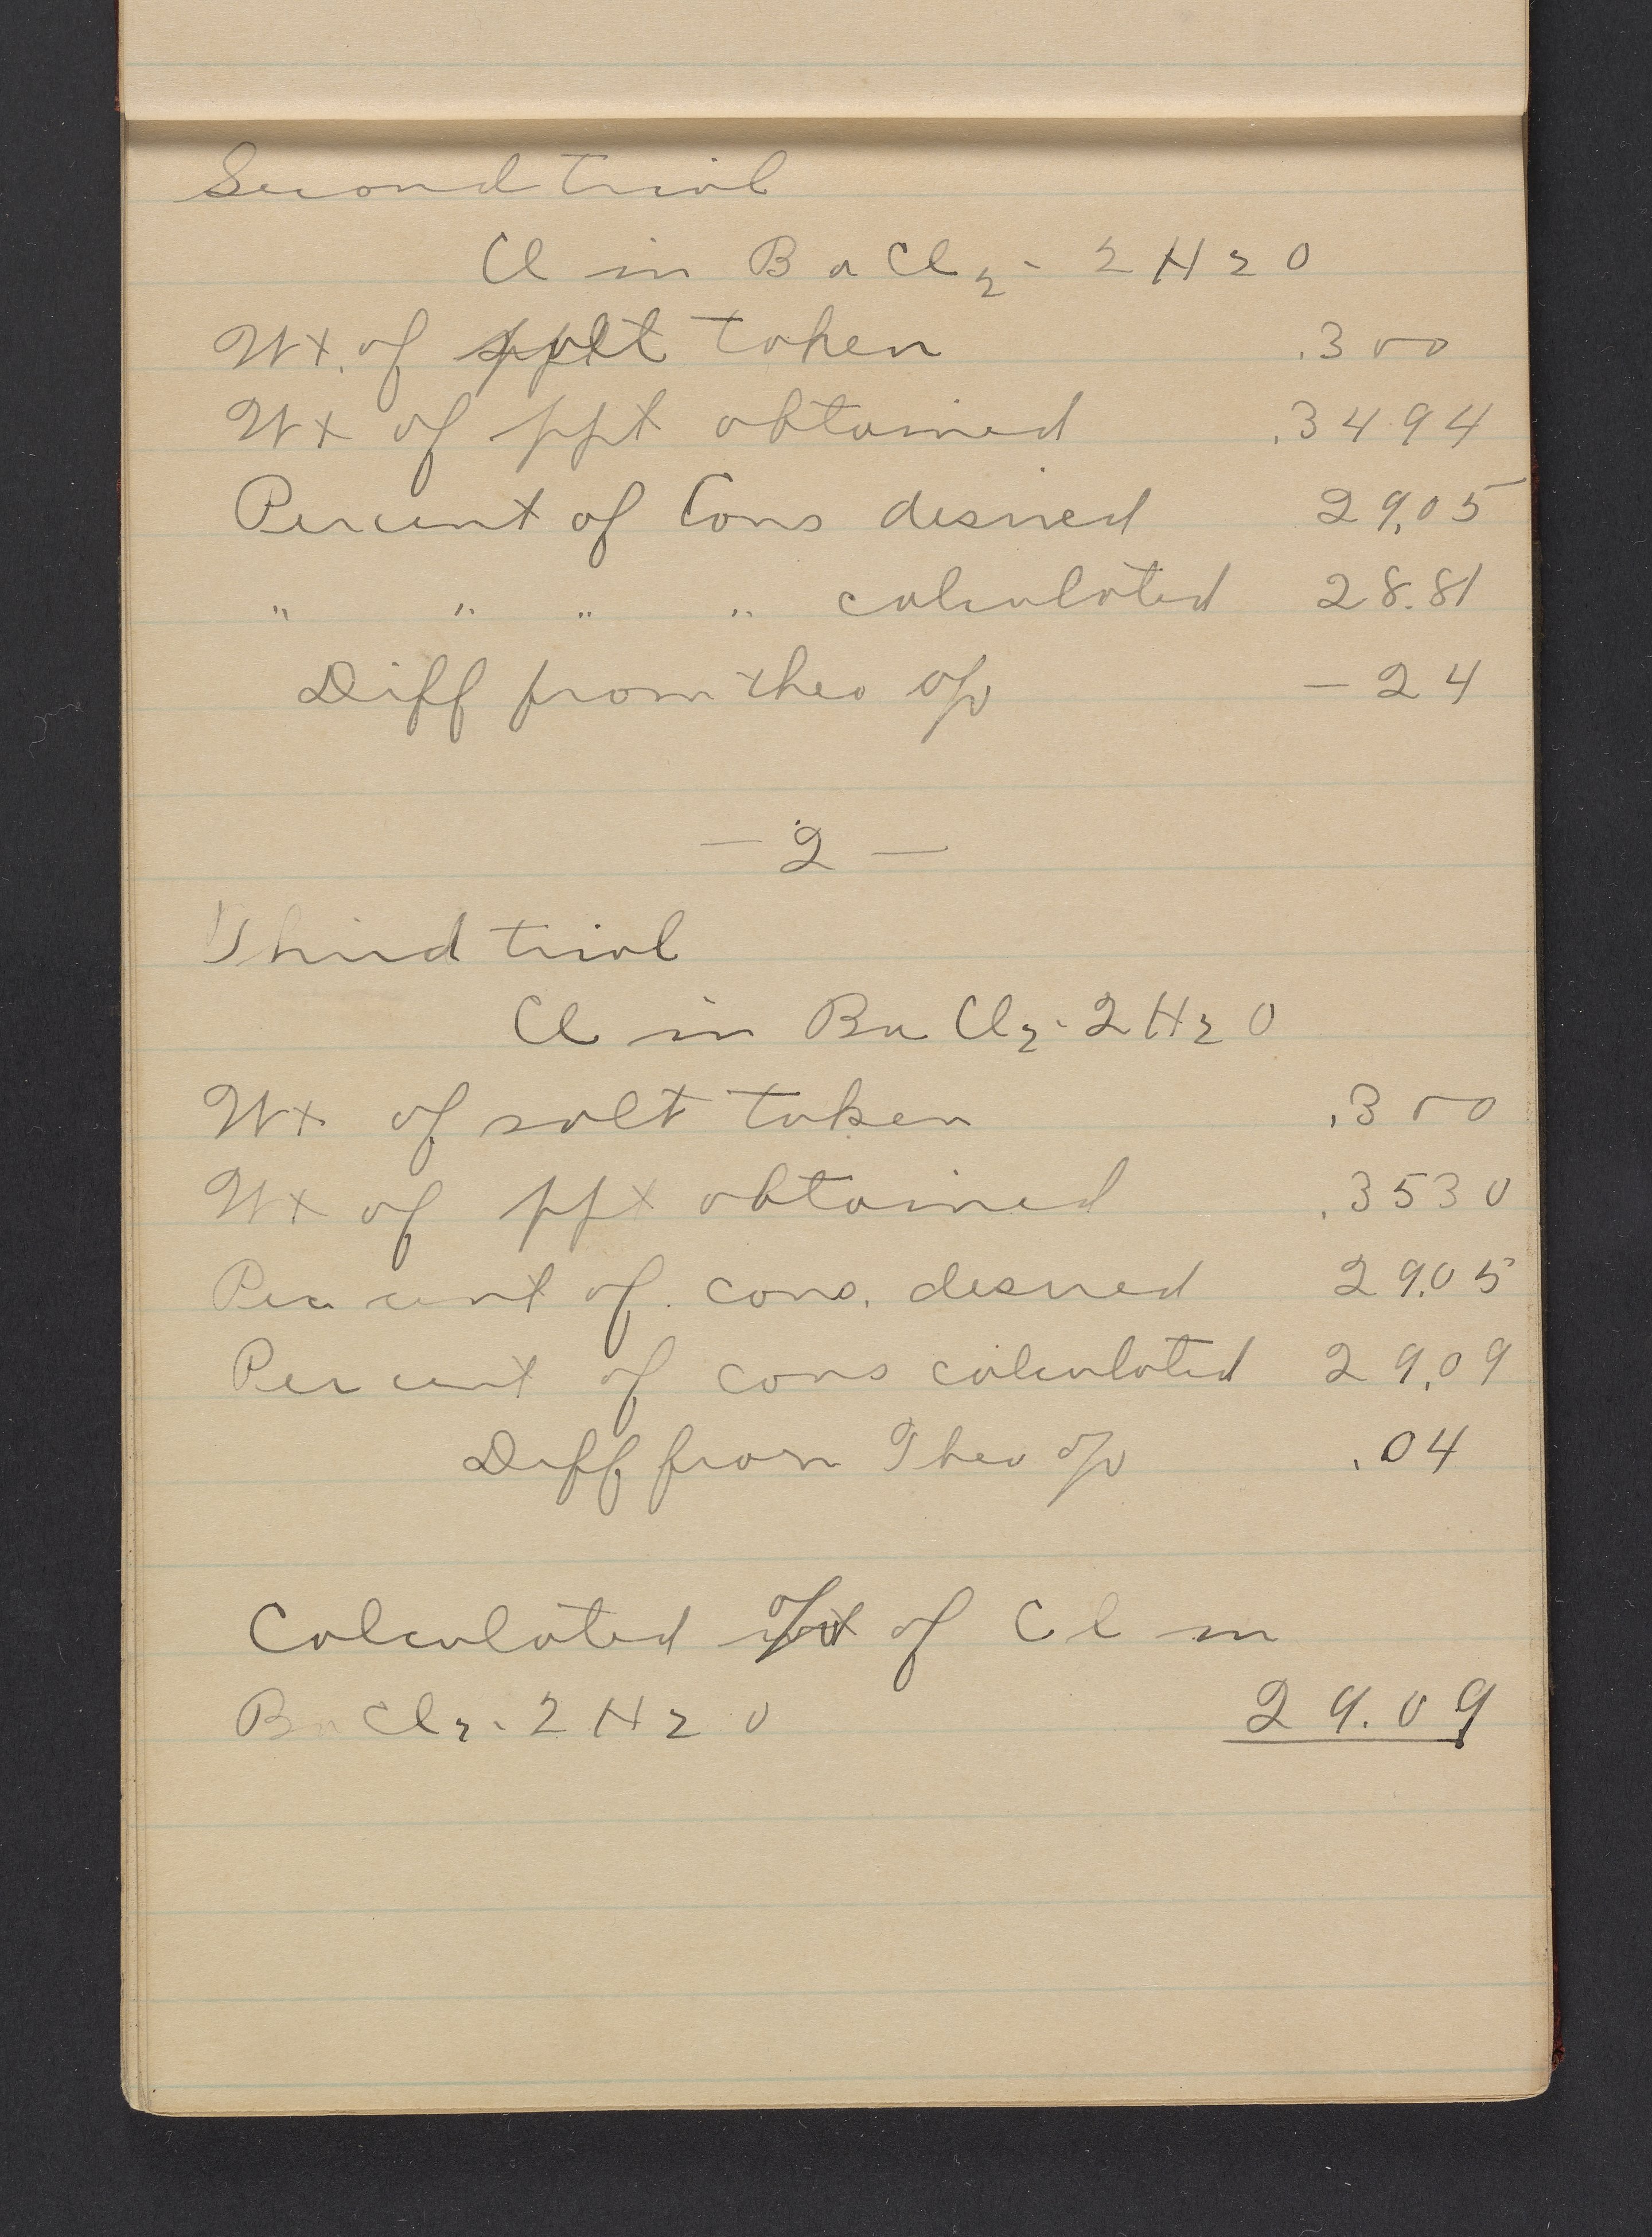 Second trial
Cl in BaCl2 · 2H2O
Wt. of salt taken .300
Wt of ppt obtained .3494
Percent of Cons desired 29.05
" " " " calculated 28.81
Diff from theo % — 24
— 2 —
Third trial
Cl in BaCl2 · 2H2O
Wt of salt taken .300
Wt of ppt obtained .3530
Percent of cons. desired 29.05
Percent of cons calculated 29.09
Diff from Theo % .04
Calculated % of Cl in
BaCl2 · 2H2O 29.09